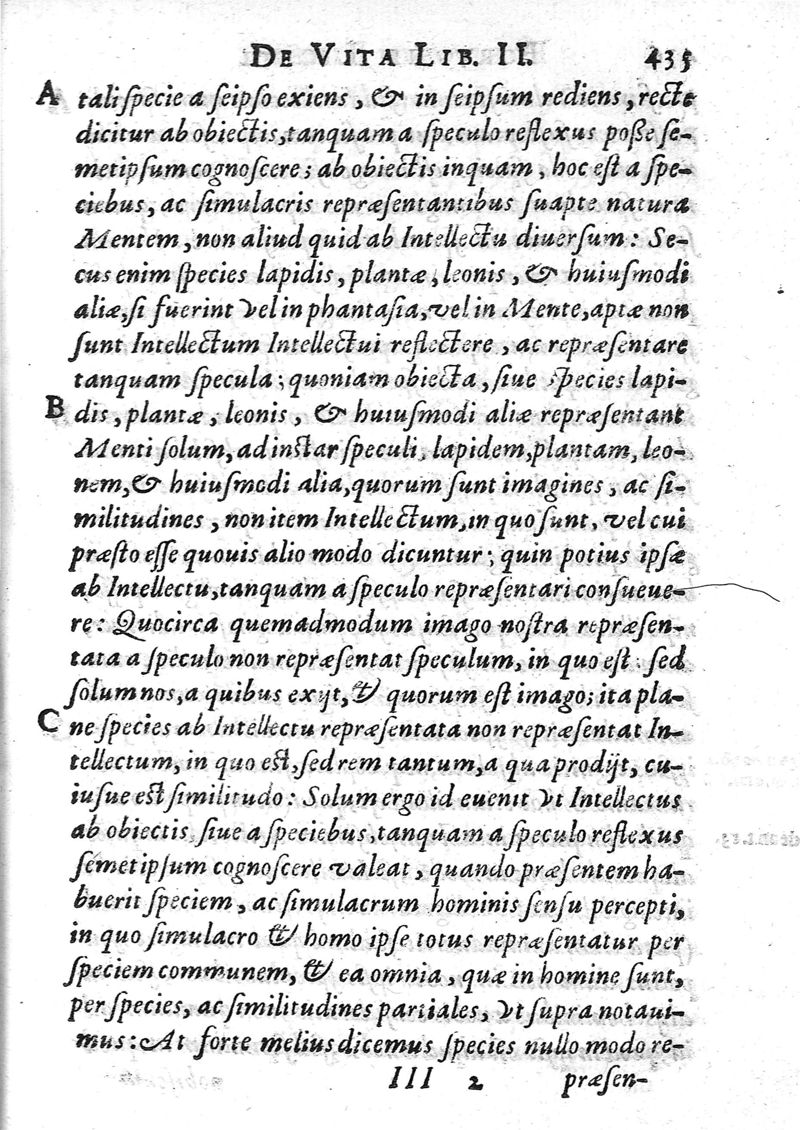 DE VITA LIB. II. 435
A tali specie a seipso exiens, & in seipsum rediens, recte
dicitur ab obiectis, tanquam a speculo reflexus poße se-
metipsum cognoscere; ab obiectis inquam, hoc est a spe-
ciebus, ac simulacris repræsentantibus suapte natura
Mentem, non aliud quid ab Intellectu diuersum: Se-
cus enim species lapidis, plantæ, leonis, & huiusmodi
aliæ, si fuerint vel in phantasia, vel in Mente, aptæ non
sunt Intellectum Intellectui reflectere, ac repræsentare
tanquam specula; quoniam obiecta, siue species lapi-
B dis, plantæ, leonis, & huiusmodi aliæ repræsentant
Menti solum, ad instar speculi, lapidem, plantam, leo-
nem, & huiusmodi alia, quorum sunt imagines, ac si-
militudines, non item Intellectum, in quo sunt, vel cui
præsto esse quouis alio modo dicuntur; quin potius ipsæ
ab Intellectu, tanquam a speculo repræsentari consueue-
re: Quocirca quemadmodum imago nostra repræsen-
tata a speculo non repræsentat speculum, in quo est sed
solum nos, a quibus exijt, & quorum est imago; ita pla-
C ne species ab Intellectu repræsentata non repræsentat In-
tellectum, in quo est, sed rem tantum, a qua prodijt, cu-
iusue est similitudo: Solum ergo id euenit vt Intellectus
ab obiectis, siue a speciebus, tanquam a speculo reflexus
semetipsum cognoscere valeat, quando præsentem ha-
buerit speciem, ac simulacrum hominis sensu percepti,
in quo simulacro & homo ipse totus repræsentatur per
speciem communem, & ea omnia, quæ in homine sunt,
per species, ac similitudines partiales, vt supra notaui-
mus: At forte melius dicemus species nullo modo re-
III 2 præsen-